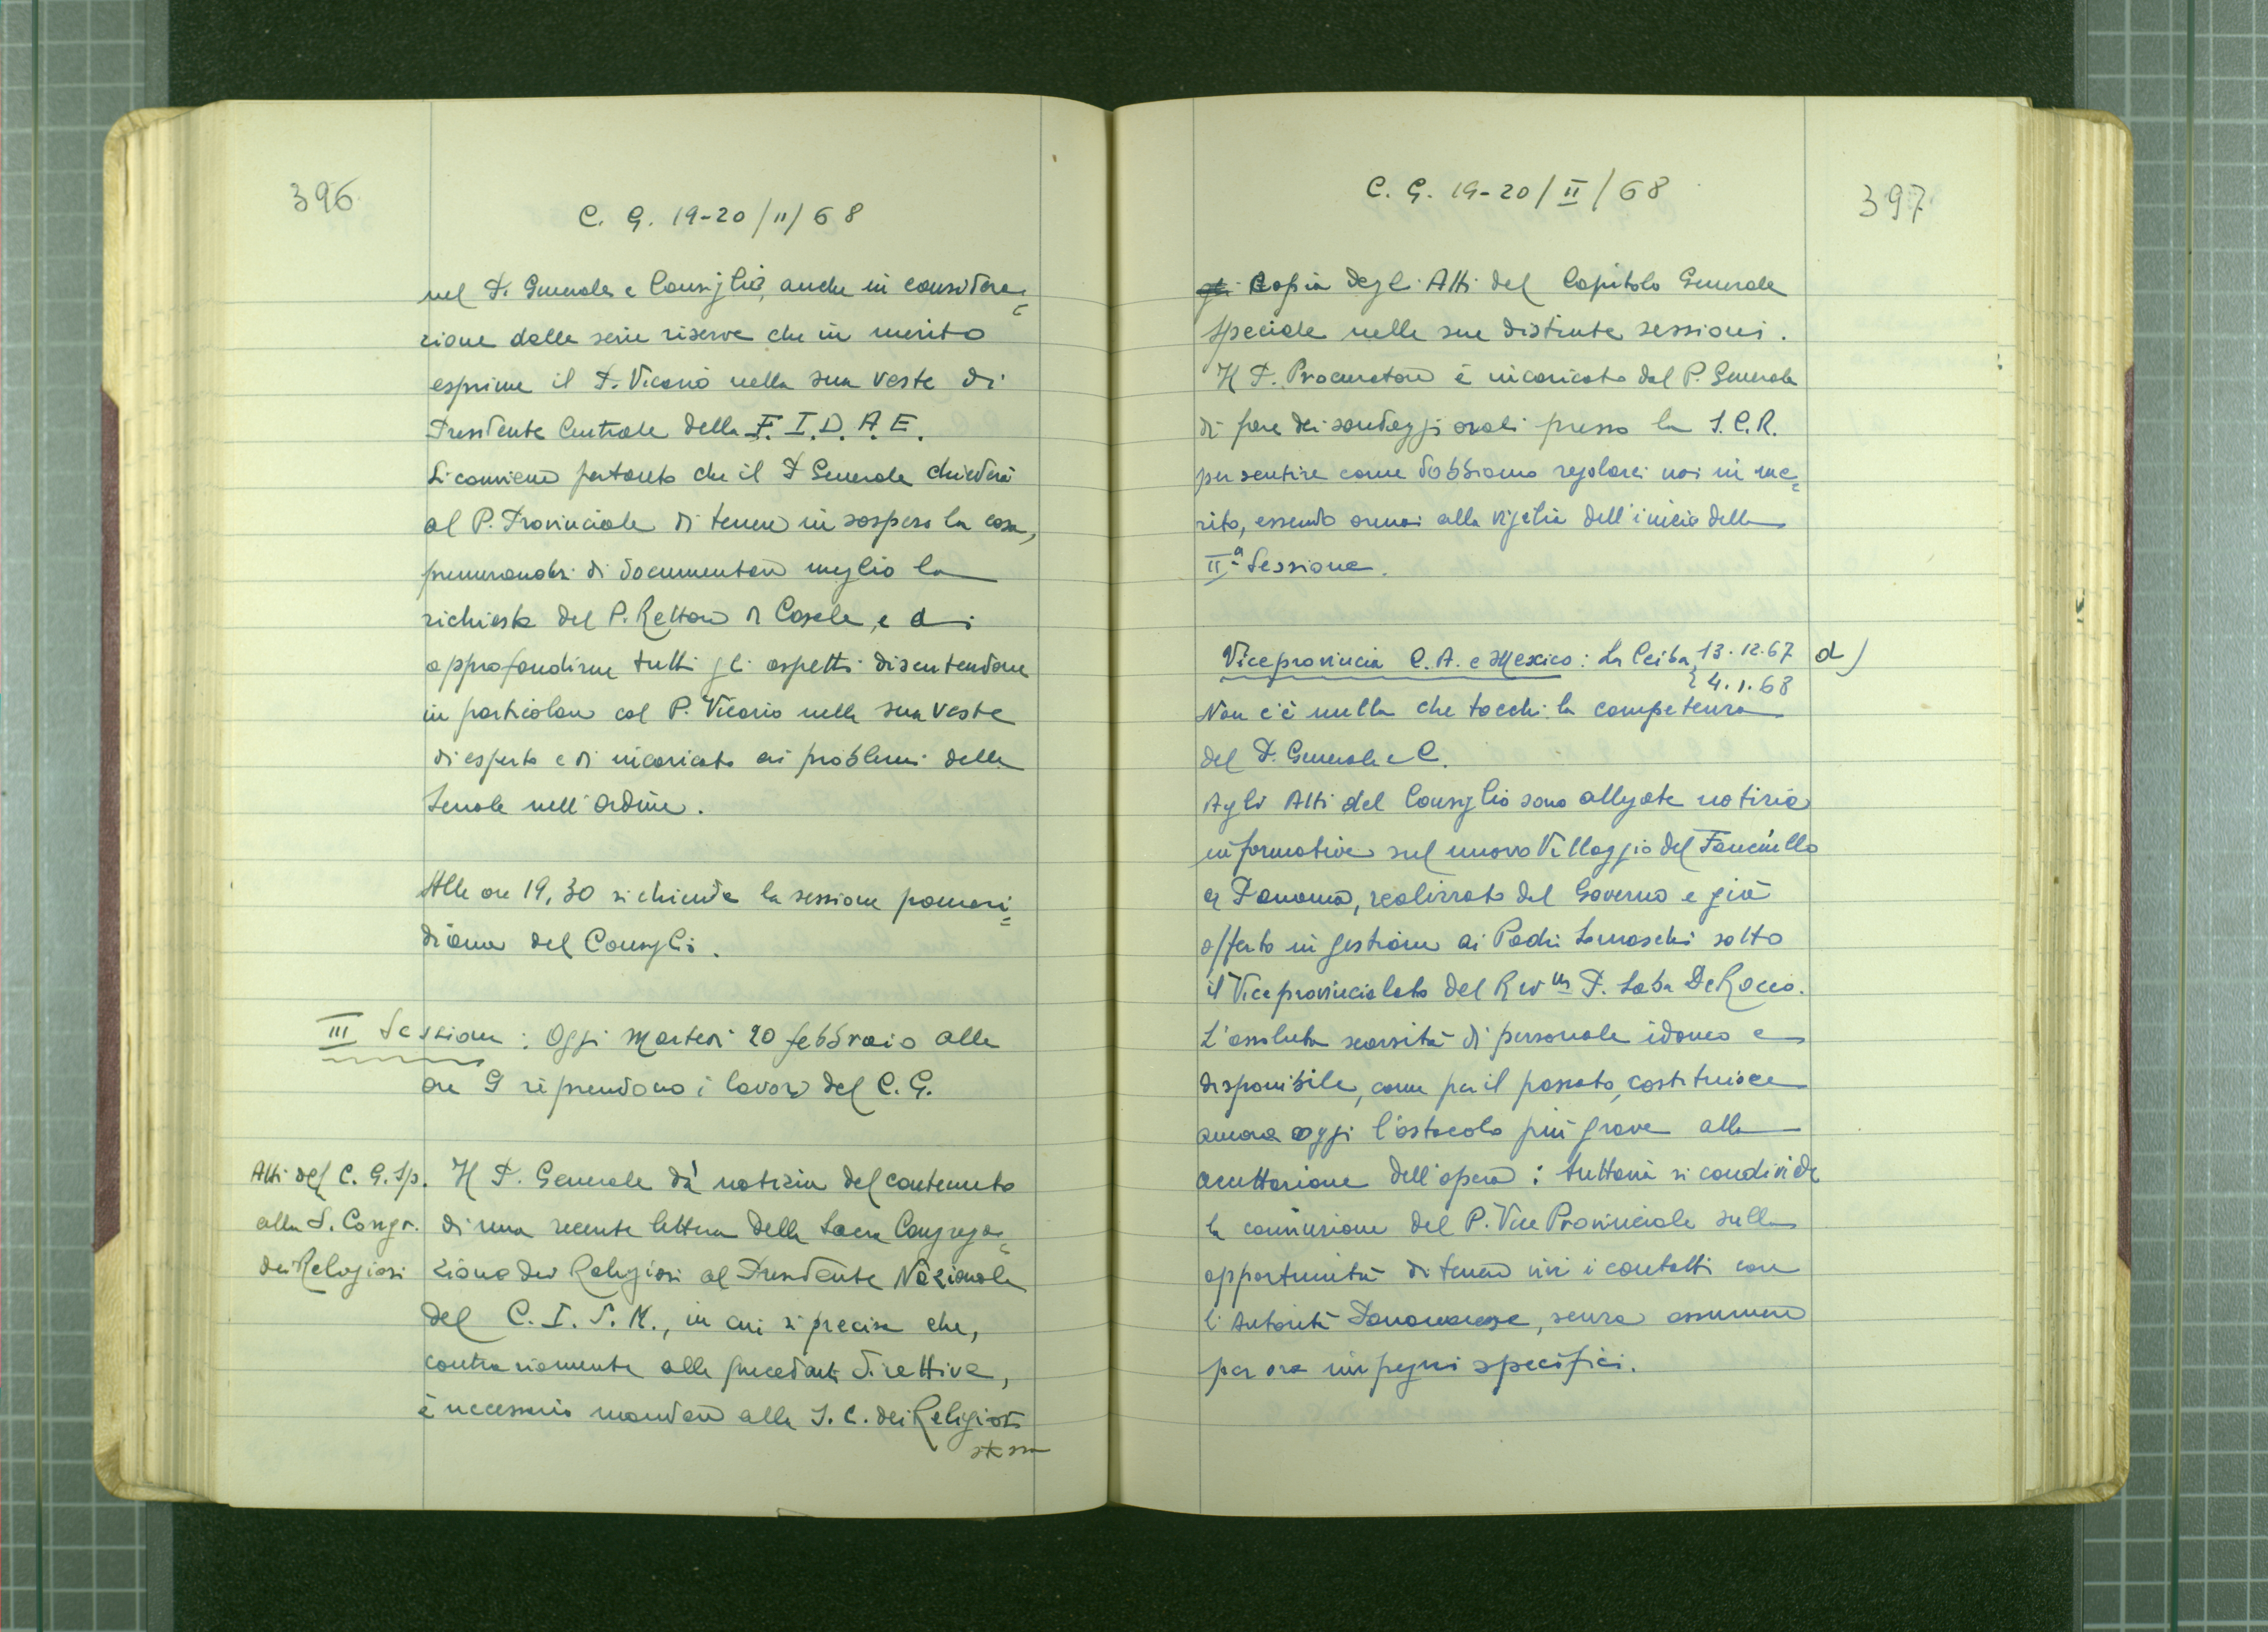 396
C. G. 19-20/II/68
nel P. Generale e Consiglio, anche in considera=
zione delle serie riserve che in merito
esprime il P. Vicario nella sua veste di
Presidente Centrale della F. I. D. A. E.
Si conviene pertanto che il P. Generale chiederà
al P. Provinciale di tenere in sospeso la cosa,
premurandosi di documentare meglio la
richiesta del P. Rettore di Casale, e di
approfondirne tutti gli aspetti discutendone
in particolare col P. Vicario nella sua veste
di esperto e di incaricato ai problemi della
Scuola nell'Ordine.
Alle ore 19,30 si chiude la sessione pomeri=
diana del Consiglio.
III Sessione: Oggi martedì 20 febbraio alle
ore 9 riprendono i lavori del C. G.
Atti del C. G. Sp.
alla S. Congr.
dei Religiosi
Il P. Generale dà notizia del contenuto
di una recente lettera della Sacra Congrega=
zione dei Religiosi al Presidente Nazionale
del C. I. S. M., in cui si precisa che,
contrariamente alle precedenti direttive,
è necessario mandare alla S. C. dei Religiosi
stessa
C. G. 19-20/II/68
397
gli Copia degli Atti del Capitolo Generale
Speciale nelle sue distinte sessioni.
Il P. Procuratore è incaricato dal P. Generale
di fare dei sondaggi orali presso la S. C. R.
per sentire come dobbiamo regolarci noi in me=
rito, essendo ormai alla vigilia dell'inizio della
IIa Sessione.
Viceprovincia C. A. e Mexico: La Ceiba, 13.12.67 d)
4.1.68
Non c'è nulla che tocchi la competenza
del P. Generale e C.
Agli Atti del Consiglio sono allegate notizie
informative sul nuovo Villaggio del Fanciullo
a Panama, realizzato dal Governo e già
offerto in gestione ai Padri Somaschi sotto
il Viceprovincialato del Rev.mo P. Saba De Rocco.
L'assoluta scarsità di personale idoneo e
disponibile, come per il passato, costituisce
ancora oggi l'ostacolo più grave alla
accettazione dell'opera: tuttavia si condivide
la convinzione del P. Vice Provinciale sulla
opportunità di tenere vivi i contatti con
l'Autorità Panamense, senza assumere
per ora impegni specifici.